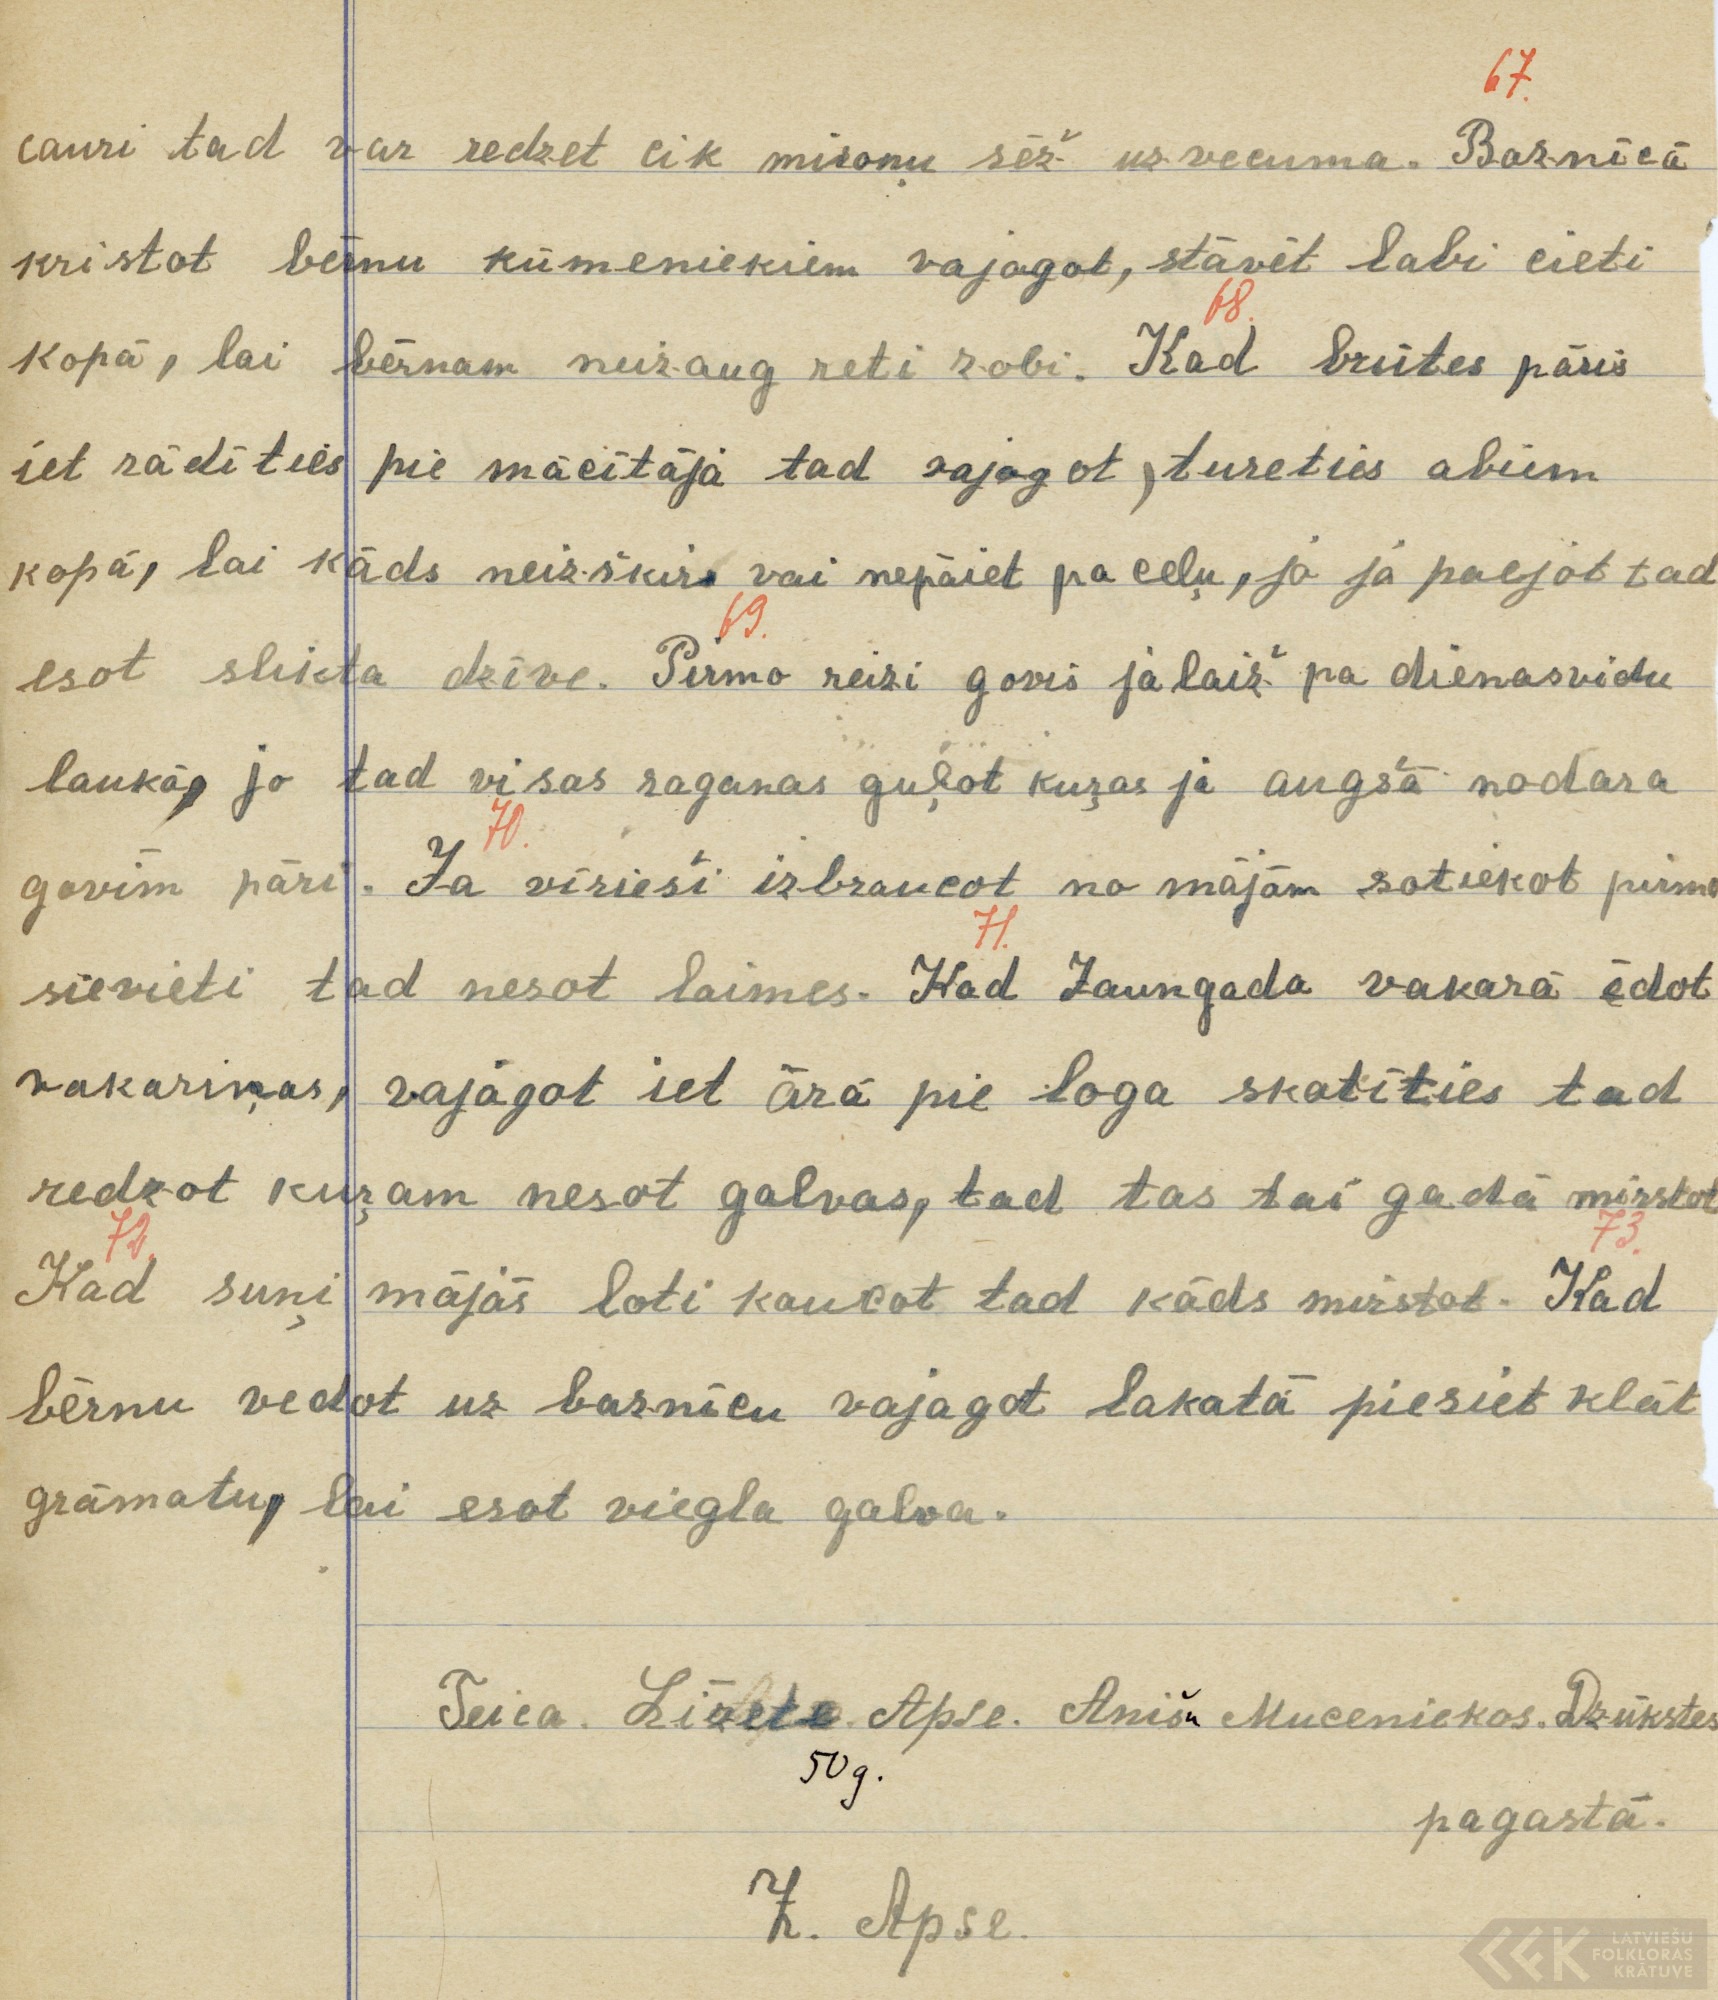 67.
cauri tad var redzet cik mironu sēž uz vecuma. Baznīcā
kristot bērnu kūmeniekiem vajagot, stāvēt labi cieti
68.
kopā, lai bērnam neizaug reti zobi. Kad brūtes pāris
iet rādīties pie mācītāja tad vajagot, tureties abiem
kopā, lai kāds neizšķir vai nepāiet pa ceļu, jo ja paejot tad
69.
esot slikta dzīve. Pirmo reizi govis jālaiž pa dienasvidu
laukā, jo tad visas raganas guļot kuŗas ja augšā nodara
70.
govīm pāri. Ja vīrieši izbraucot no mājām satiekot pirmo
71.
sievieti tad nesot laimes. Kad Jaungada vakarā ēdot
vakariņas, vajagot iet ārā pie loga skatīties tad
redzot kuŗam nesot galvas, tad tas tai gadā mirstot
72. 73.
Kad suņi mājās loti kaucot tad kāds mirstot. Kad
bērnu vedot uz baznīcu vajagot lakatā piesiet klāt
grāmatu, lai esot viegla galva.
Teica. Līzete Apse. Anišu Muceniekos. Dzūkstes
50 g.
pagastā.
Z. Apse.
LATVIEŠU
FOLKLORAS
KRĀTUVE